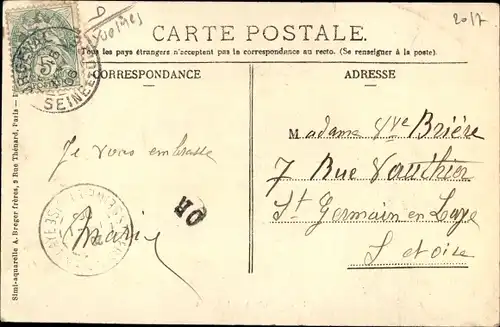 D
Yvelines
2017
CARTE POSTALE.
Tous les pays étrangers n'acceptent pas la correspondance au recto. (Se renseigner à la poste).
CORRESPONDANCE
ADRESSE
5
SEINE
Je vous embrasse
Marie
OR
Madame Vve Brière
7 Rue Vauthier
St Germain en Laye
S et oise
Simi-aquarelle A. Breger frères, 9 Rue Thénard, Paris